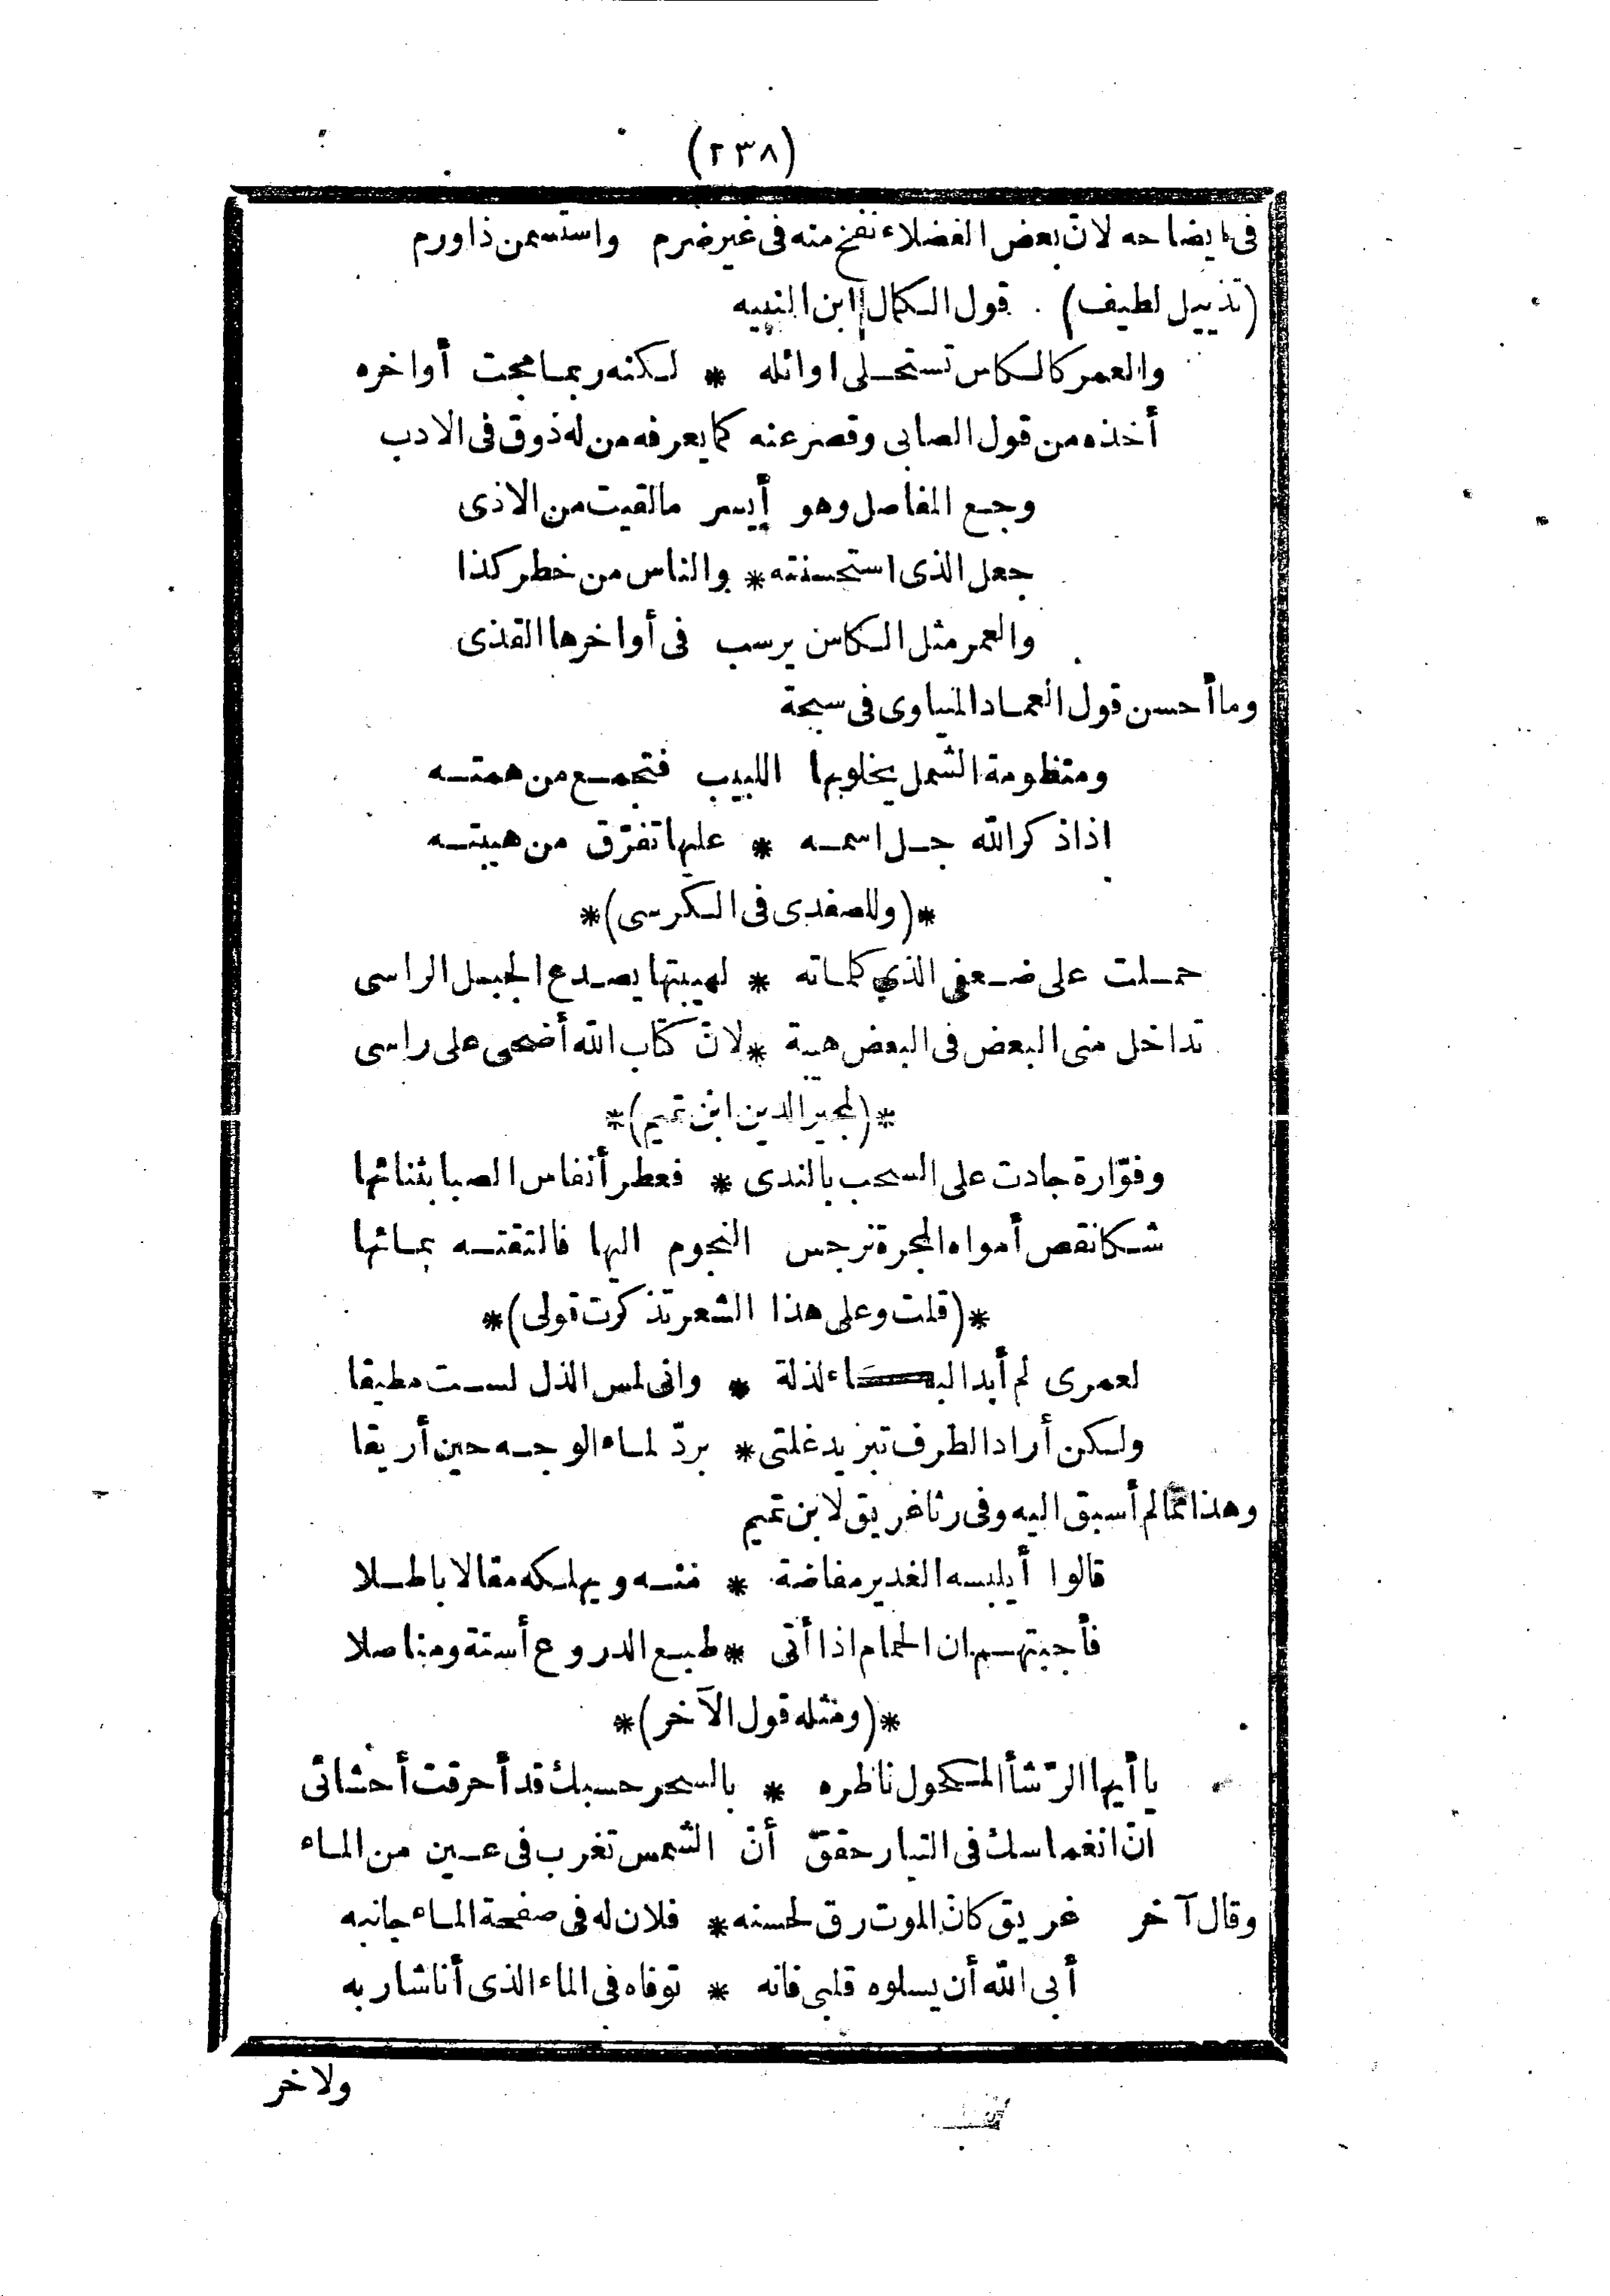 (٢٣٨)
فى ايضاحه لان بعض الفضلاء نفخ منه فى غير ضرم واستسمن ذا ورم
(تذييل لطيف) . قول الكمال ابن النبيه
والعمر كالكاس تستحلى اوائله * لكنه ربما مجت أواخره
أخذه من قول الصابى وقصر عنه كما يعرفه من له ذوق فى الادب
وجع المفاصل وهو أيسر ما لقيت من الاذى
جعل الذى استحسنته * والناس من خطر كذا
والعمر مثل الكاس يرسب فى أواخرها القذى
وما أحسن قول العماد المناوى فى سبحة
ومنظومة الشمل يخلو بها اللبيب فتجمع من همته
اذا ذكر الله جل اسمه * عليها تفرّق من هيبته
*(وللصفدى فى الكرسى)*
حملت على ضعفى الذى كلماته * لهيبتها يصدع الجبل الراسى
تداخل منى البعض فى البعض هيبة * لانّ كتاب الله أضحى على راسى
*(لمجير الدين ابن تميم)*
وفوّارة جادت على السحب بالندى * فعطر أنفاس الصبا بثنائها
شكا نقص أمواه المجرة نرجس النجوم اليها فالتقته بمائها
*(قلت وعلى هذا الشعر تذكرت قولى)*
لعمرى لم أبد البكاء لذلة * وانى لمس الذل لست مطيقا
ولكن أراد الطرف تبريد غلتى * بردّ لماء الوجه حين أريقا
وهذا ممّا لم أسبق اليه وفى رثا غريق لابن تميم
قالوا أيلبسه الغدير مفاضة * منه ويهلكه مقالا باطلا
فأجبتهم ان الحمام اذا أتى * طبع الدروع أسنة ومناصلا
*(ومثله قول الآخر)*
يا أيها الرّشأ المكحول ناظره * بالسحر حسبك قد أحرقت أحشائى
انّ انغماسك فى التيار حقق أنّ الشمس تغرب فى عين من الماء
وقال آخر غريق كانّ الموت رق لحسنه * فلان له فى صفحة الماء جانبه
أبى الله أن يسلوه قلبى فانه * توفاه فى الماء الذى أنا شاربه
ولاخر